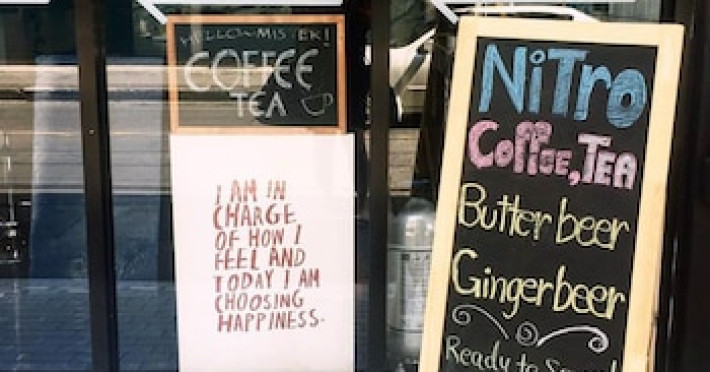 COFFEE
TEA
I AM IN
CHARGE
OF HOW I
FEEL AND
TODAY I AM
CHOOSING
HAPPINESS.
NiTro
Coffee, TEA
Butter beer
Gingerbeer
Ready to